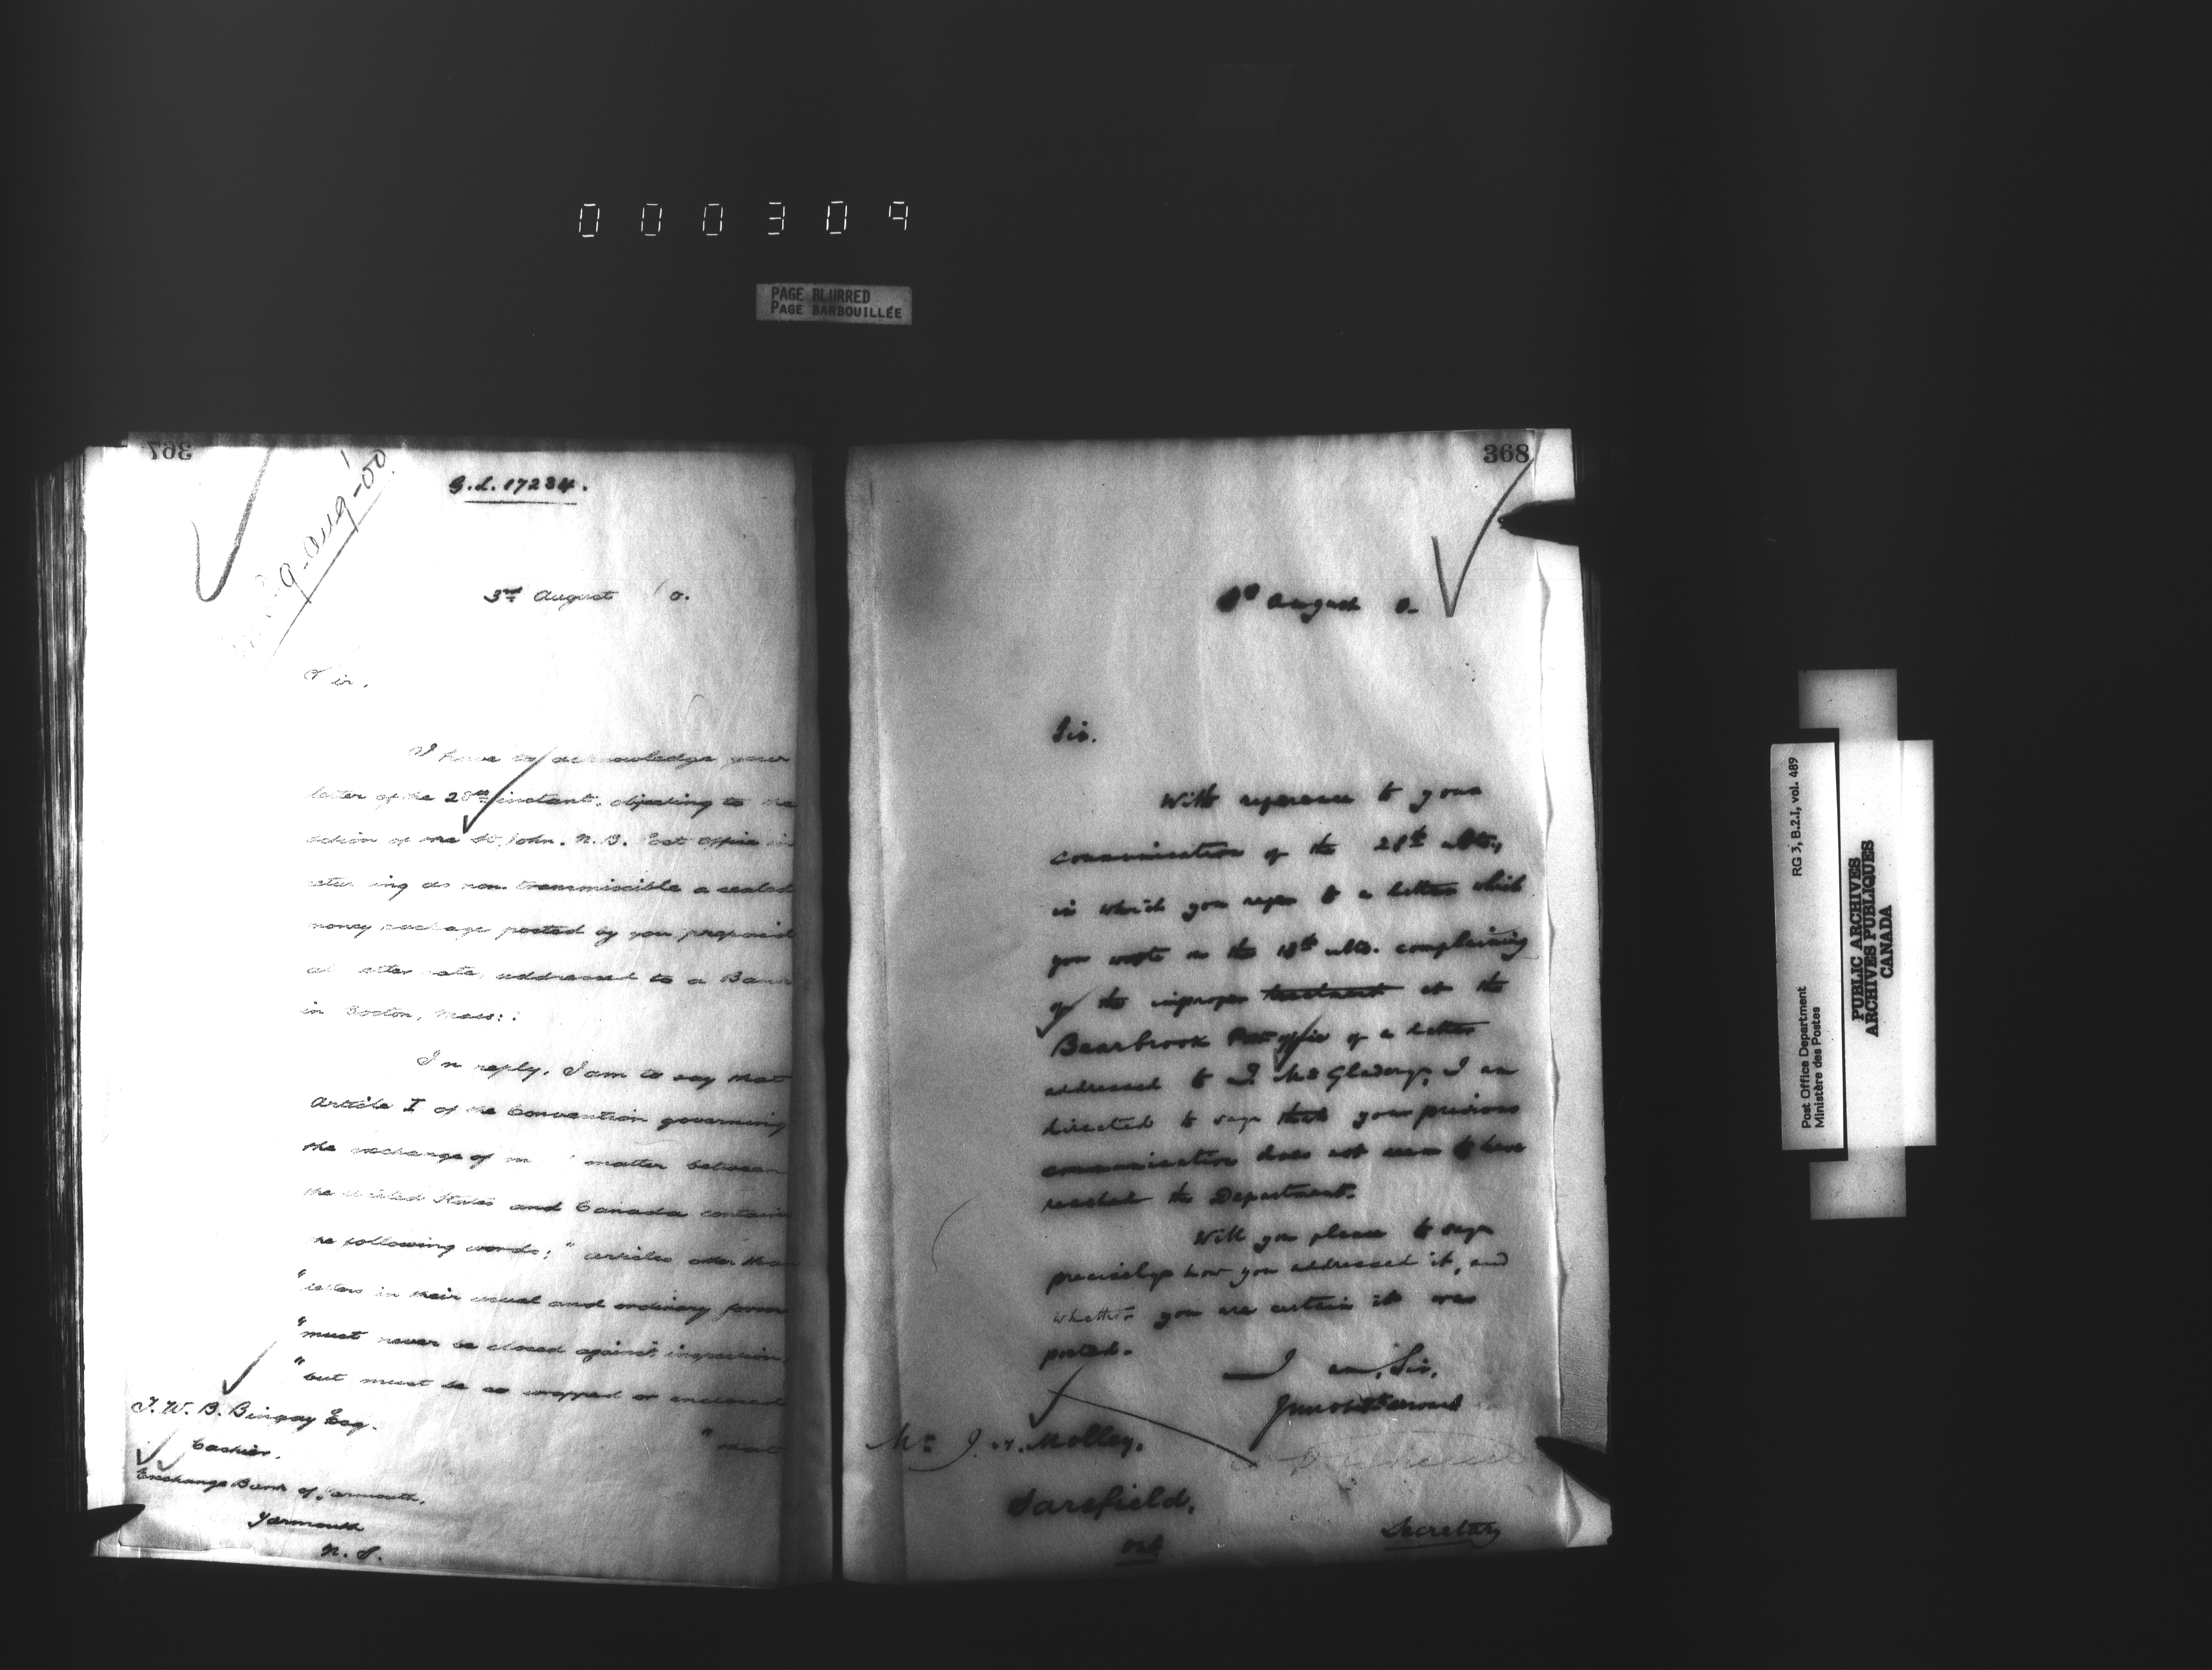 000309
PAGE BLURRED
PAGE BARBOUILLÉE
367
G.L. 17234.
9-Aug-00
3rd August 0.
Sir,
I have to acknowledge your
letter of the 28th instant, objecting to the
action of the St. John. N.B. Post Office in
ing as non transmissible a sealed
money package posted by you prepaid
at letter rate, addressed to a Bank
in Boston, Mass:.
In reply, I am to say that
Article I of the Convention governing
the exchange of matter between
the United States and Canada contains
the following words; "articles other than
"letters in their usual and ordinary form
"must never be closed against inspection,
"but must be so wrapped or enclosed
"that
T. W. B. Bingay Esq.
Cashier,
Exchange Bank of Yarmouth,
Yarmouth
N.S.
368
August 0.
Sir.
With reference to your
communication of the 28th ulto.,
in which you refer to a letter which
you wrote on the 18th ulto. complaining
of the improper treatment at the
Bearbrook Post office of a letter
addressed to I am
directed to say that your previous
communication does not seem to have
reached the Department.
Will you please to say
precisely how you addressed it, and
whether you are certain it was
posted.
I am, Sir,
Your obt Servant
Mr. J. Molley,
Sarsfield,
Ont
Secretary
RG 3, B.2.I, vol. 489
Post Office Department
Ministère des Postes
PUBLIC ARCHIVES
ARCHIVES PUBLIQUES
CANADA